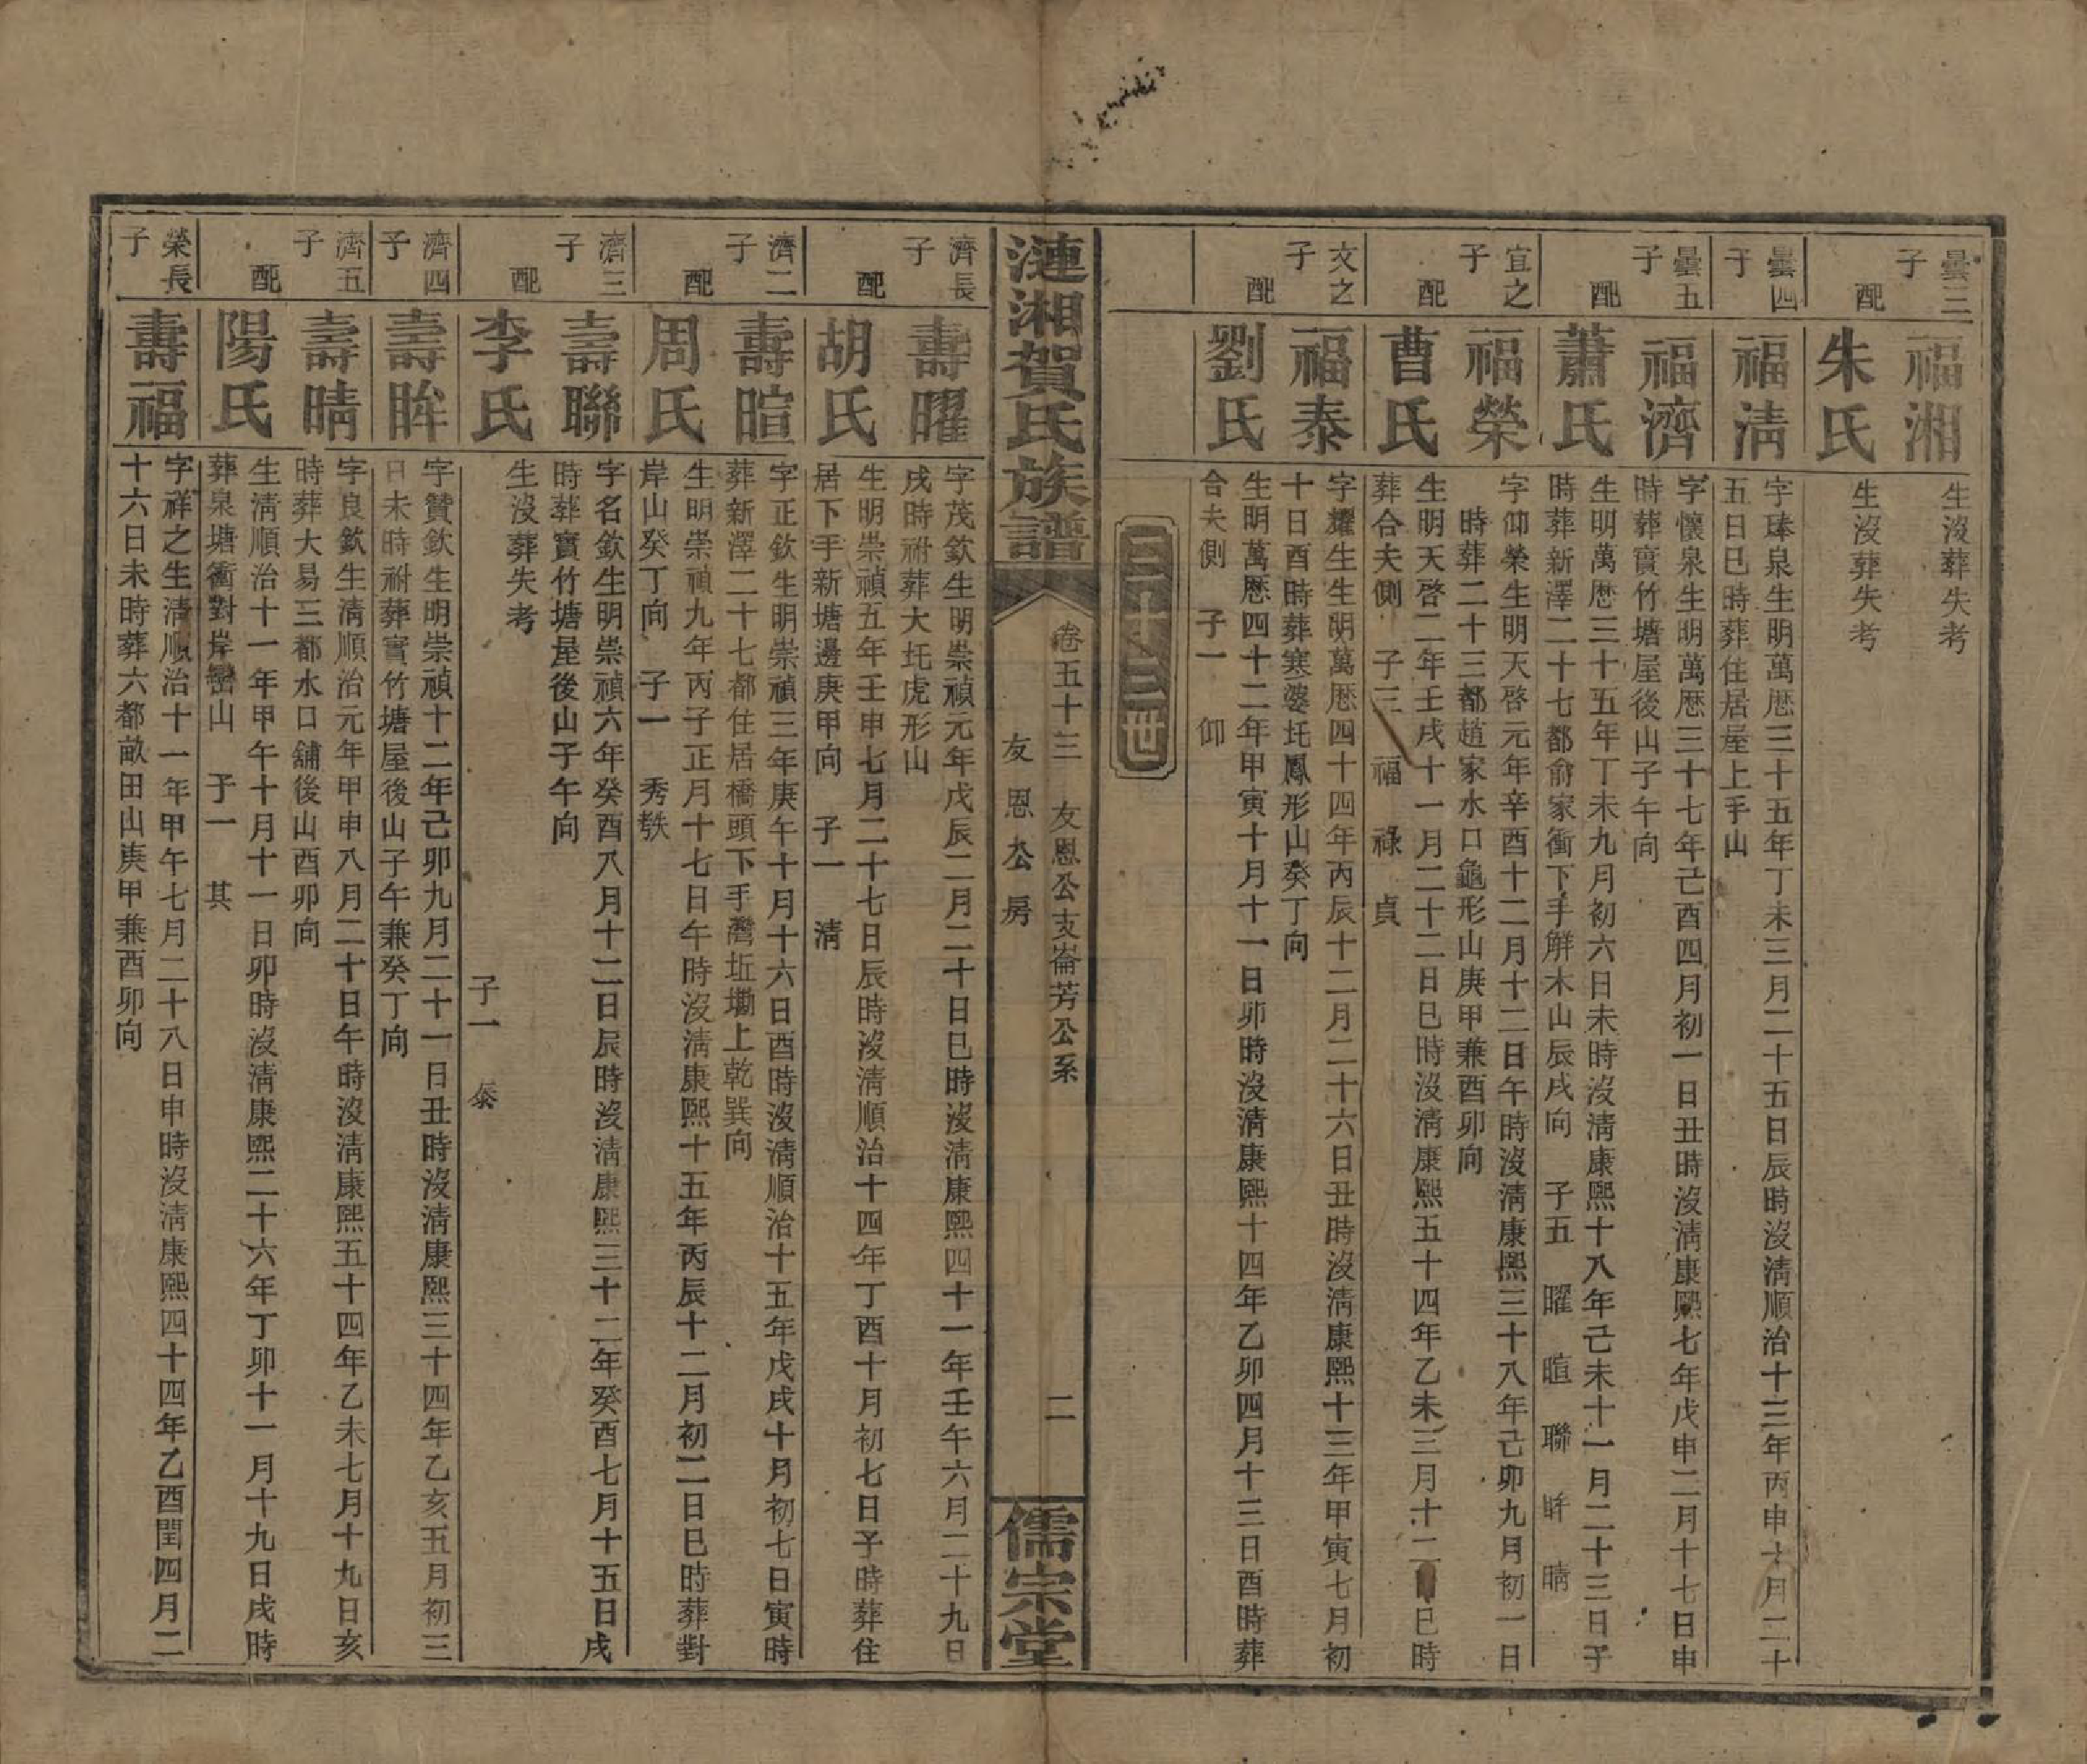 曇三子 福湘 生沒葬失考
配 朱氏 生沒葬失考
曇四子 福清 字琫泉生明萬厯三十五年丁未三月二十五日辰時沒清順治十三年丙申十月二十
五日巳時葬住居屋上手山
曇五子 福濟 字懷泉生明萬厯三十七年己酉四月初一日丑時沒清康熙七年戊申二月十七日申
時葬實竹塘屋後山子午向
配 蕭氏 生明萬厯三十五年丁未九月初六日未時沒清康熙十八年己未十一月二十三日子
時葬新澤二十七都俞家衝下手觧木山辰戌向 子五 曜 暄 聯 眸 晴
宜之子 福榮 字仰榮生明天啓元年辛酉十二月十二日午時沒清康熙三十八年己卯九月初一日
時葬二十三都趙家水口龜形山庚甲兼酉卯向
配 曹氏 生明天啓二年壬戌十一月二十二日巳時沒清康熙五十四年乙未三月十二日巳時
葬合夫側 子三 福 祿 貞
文之子 福泰 字耀生生明萬厯四十四年丙辰十二月二十六日丑時沒清康熙十三年甲寅七月初
十日酉時葬寒婆圫鳳形山癸丁向
配 劉氏 生明萬厯四十二年甲寅十月十一日卯時沒清康熙十四年乙卯四月十三日酉時葬
合夫側 子一 仰
三十三世
漣湘賀氏族譜 卷五十三 友恩公支崙芳公系 友恩公房 二 儒宗堂
濟長子 壽曜 字茂欽生明崇禎元年戊辰二月二十日巳時沒清康熙四十一年壬午六月二十九日
戌時祔葬大圫虎形山
配 胡氏 生明崇禎五年壬申七月二十七日辰時沒清順治十四年丁酉十月初七日子時葬住
居下手新塘邊庚甲向 子一 清
濟二子 壽暄 字正欽生明崇禎三年庚午十月十六日酉時沒清順治十五年戊戌十月初七日寅時
葬新澤二十七都住居橋頭下手灣坵墈上乾巽向
配 周氏 生明崇禎九年丙子正月十七日午時沒清康熙十五年丙辰十二月初二日巳時葬對
岸山癸丁向 子一 秀
濟三子 壽聯 字名欽生明崇禎六年癸酉八月十二日辰時沒清康熙三十二年癸酉七月十五日戌
時葬實竹塘屋後山子午向
配 李氏 生沒葬失考
子一 泰
濟四子 壽眸 字贊欽生明崇禎十二年己卯九月二十一日丑時沒清康熙三十四年乙亥五月初三
日未時祔葬實竹塘屋後山子午兼癸丁向
濟五子 壽晴 字良欽生清順治元年甲申八月二十日午時沒清康熙五十四年乙未七月十九日亥
時葬大易三都水口舖後山酉卯向
配 陽氏 生清順治十一年甲午十月十一日卯時沒清康熙二十六年丁卯十一月十九日戌時
葬泉塘衝對岸巒山 子一 其
榮長子 壽福 字祥之生清順治十一年甲午七月二十八日申時沒清康熙四十四年乙酉閏四月二
十六日未時葬六都畝田山庚甲兼酉卯向